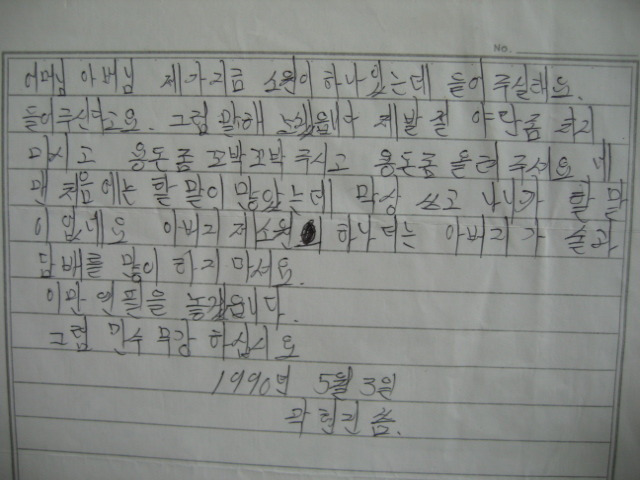 No.
어머님 아버님 제가 지금 소원이 하나 있는데 들어 주실래요.
들어주신다고요. 그럼 말해 보겠읍니다 제발 절 야단좀 치지
마시고 용돈좀 꼬박꼬박 주시고 용돈좀 올려 주서요 네
맨 처음에는 할 말이 많았는데 막상 쓰고 나니까 할 말
이 없네요 아버지 저 소원 하나더는 아버지가 술과
담배를 많이 하지 마서요.
이만 연필을 놓겠읍니다.
그럼 만수 무강 하십시요
1990년 5월 3일
현진 씀.